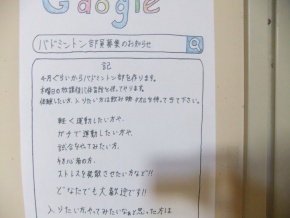 Google
バドミントン部員募集のお知らせ
記
4月ぐらいからバドミントン部を作ります。
木曜日の放課後に体育館を使ってやります。
体験したい方、入りたい方は飲み物・タオルを持ってきて下さい。
軽く運動したい方や、
ガチで運動したい方や、
試合をやってみたい方、
初心者の方、
ストレスを発散させたい方など!!
どなたでも大歓迎です!!
入りたい方、やってみたいなぁと思った方は